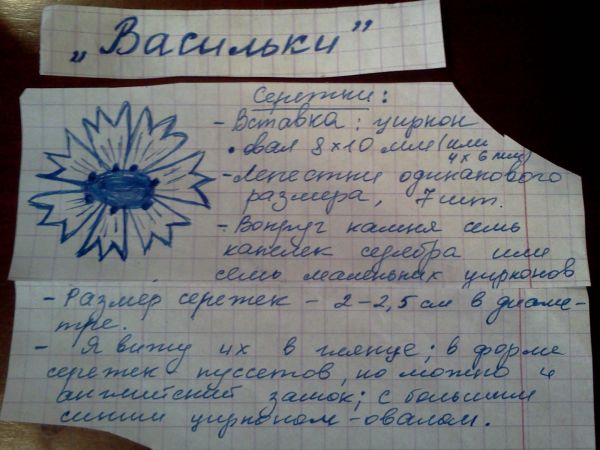 „Васильки”
Сережки:
- Вставка: циркон
• овал 8×10 мм (или
4×6 мм)
- Лепестки одинакового
размера, 7 шт.
- Вокруг камня семь
капелек серебра или
семь маленьких цирконов
- Размер сережек - 2-2,5 см в диаме-
тре.
- Я вижу их в глянце; в форме
сережек пуссетов, но можно и
английский замок; с большим
синим цирконом-овалом.